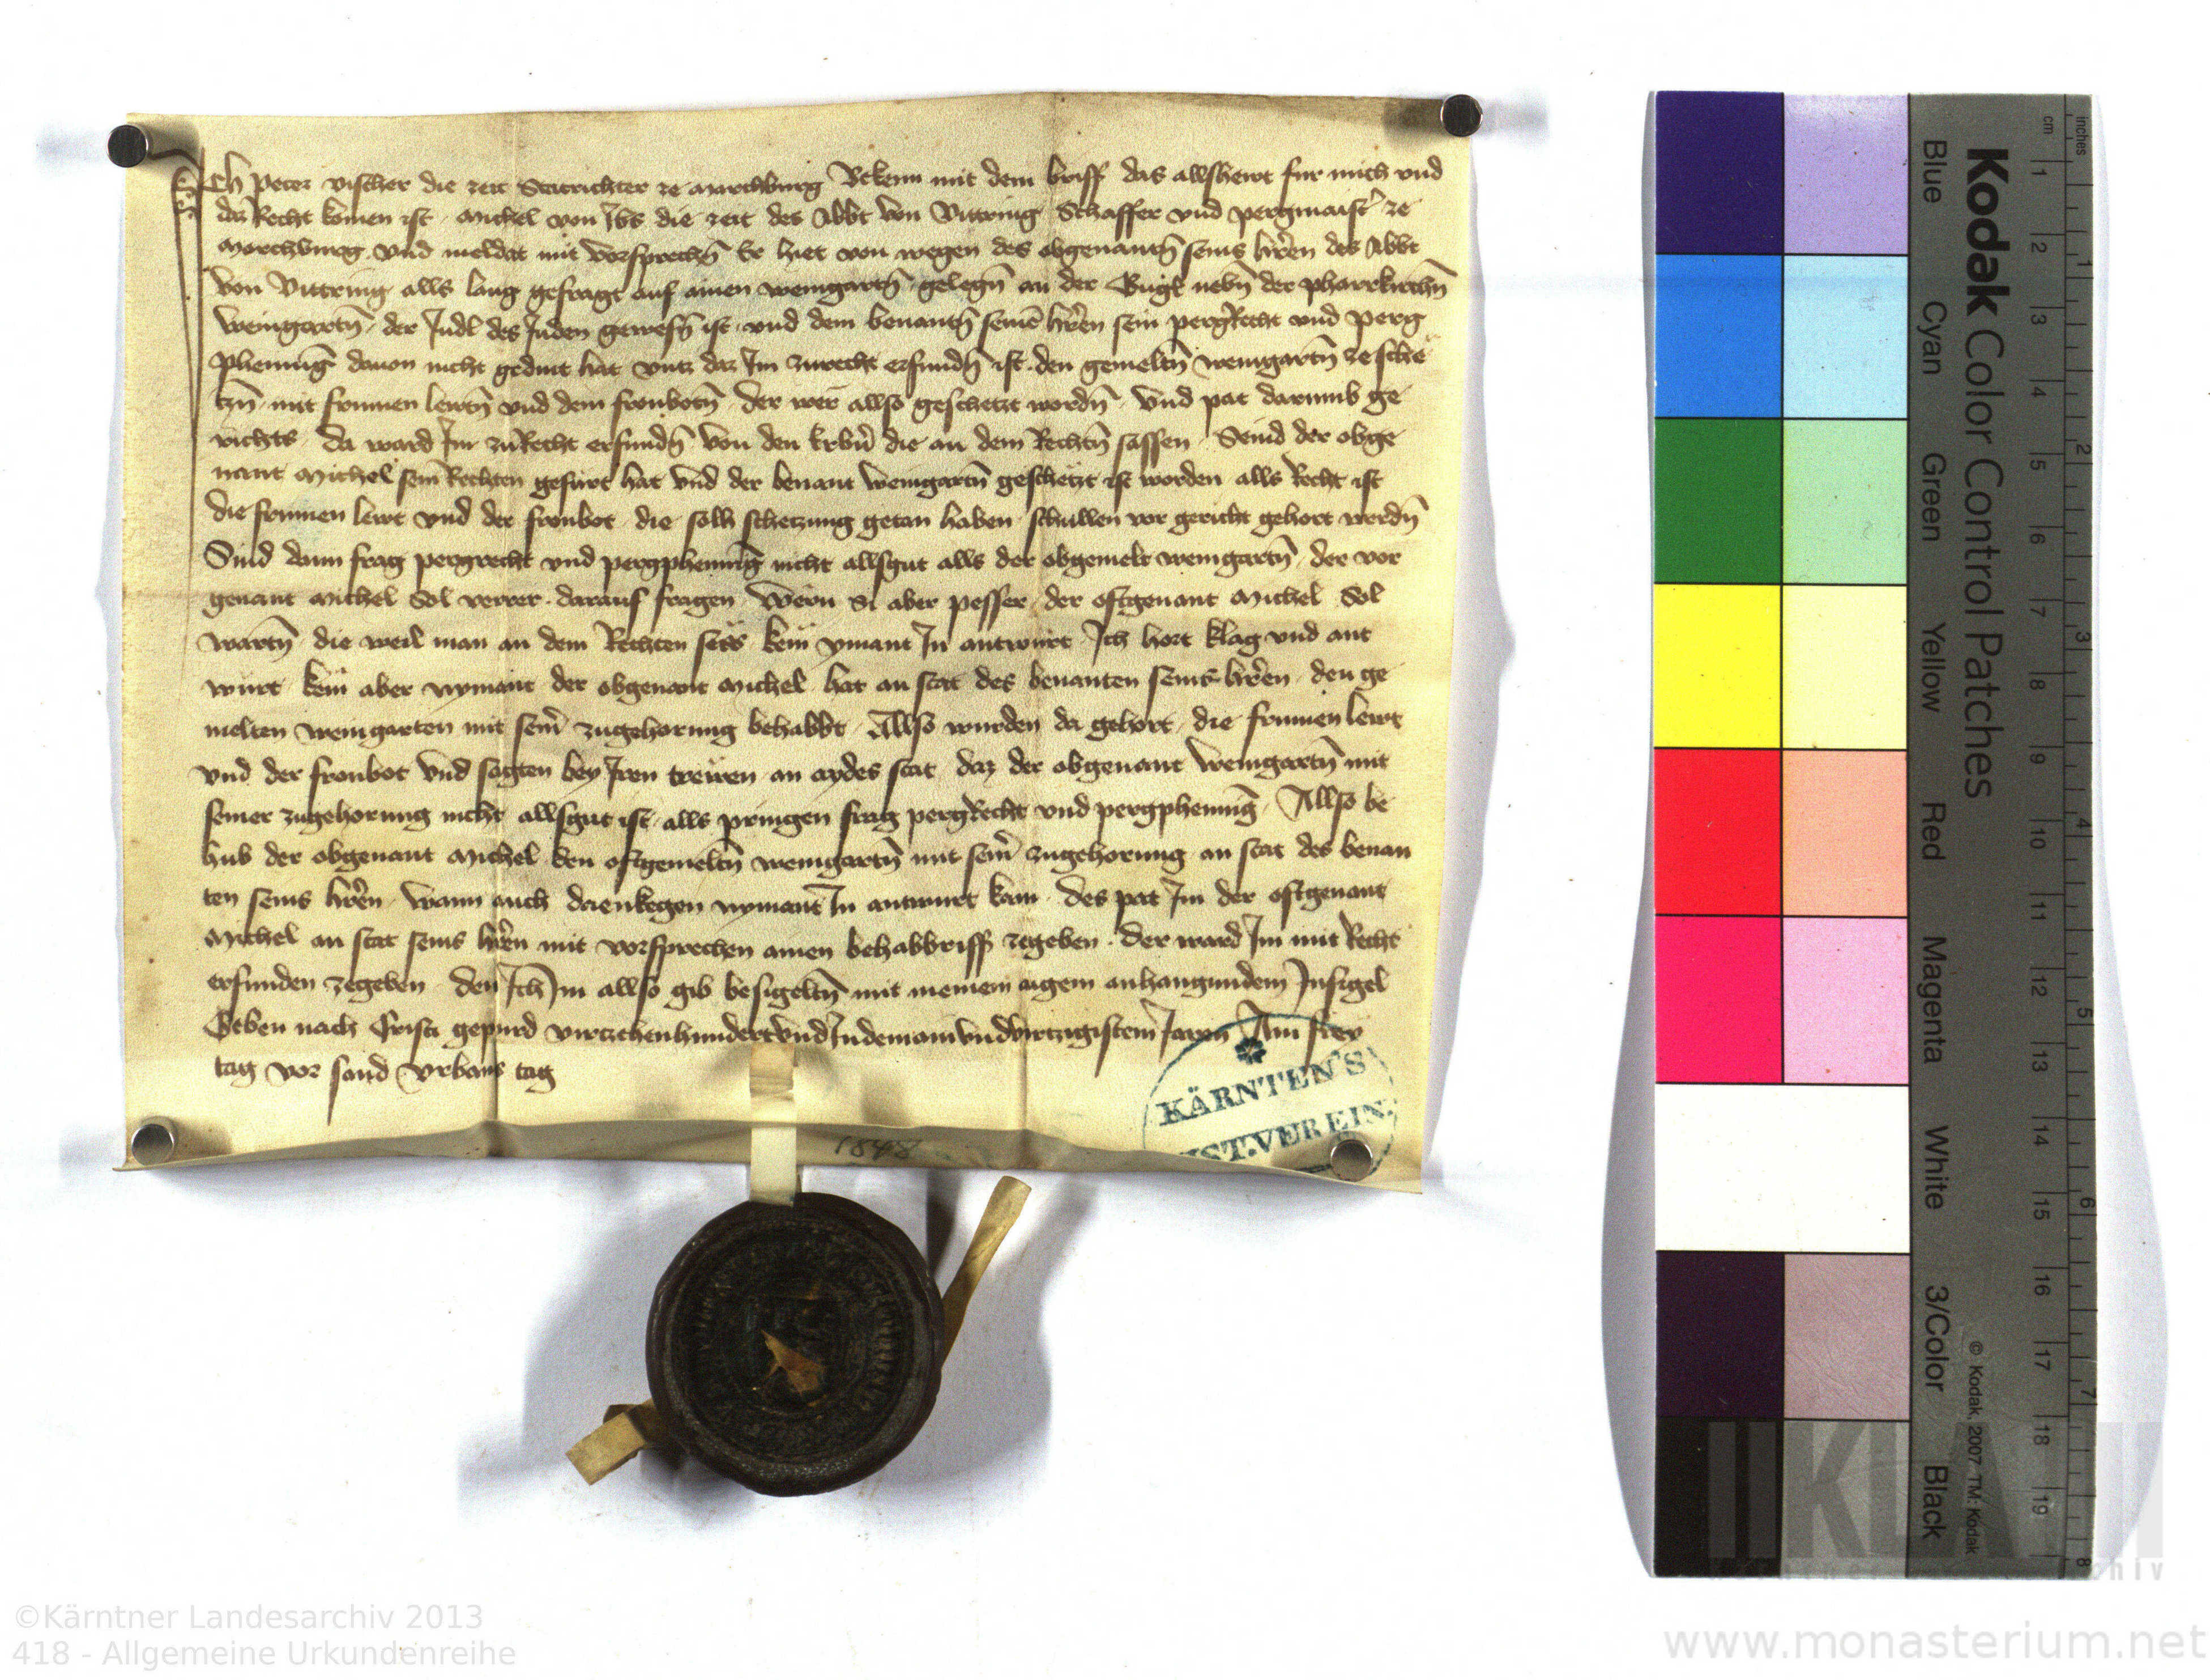 Ich Peter vischer die zeit Statrichter ze marchburg Bekenn mit dem briff das allshewt fur mich und
daz Recht komen ist Michel von Ibs die zeit des Abbt von Vittring Schaffer vnd pergmaist ze
Marchburg vnd meldat mit vorsprechn Er hiet von wegen des obgenantn seins hren des Abbt
von Vittring alls lang gefragt auf ainen weingartn gelegn an der nebn der pharrkirchn
weingartn der Judl des Juden gewesn ist vnd dem benantn seine hren sein pergRecht vnd perg
phennig dauon nicht gedint hat vntz daz Im zurecht erfundn ist den gemeltn weingartn ze sche
tzn mit frumen lewtn vnd dem fronbotn der wer allso geschetzt wordn Vnd pat darumb ge
richts da ward Im zuRecht erfundn von den die an dem Rechtn sassen Seind der obge
nant Michel sein Rechten gefurt hat vnd der benant weingartn geschetzt ist worden alls Recht ist
die frumen lewt vnd der fronbot die solh schetzung getan haben schullen vor gericht gehort werdn
Sind dann frag pergrecht vnd pergphennig nicht allsgut alls der obgemelt weingartn der vor
genant Michel Sol verrer darauf fragen Wern Si aber pesser der oftgenant Michel Sol
wartn die weil man an dem Rechten sitz kem ymant In antwurt Ich hort klag vnd ant
wurt kem aber nymant der obgenant Michel hat an stat des benanten seins hren den ge
melten weingarten mit seinr zugehorung behabbt Allso wurden da gehort die frumen lewt
vnd der fronbot Vnd sagten bey Iren trewen an aydes stat daz der obgenant weingartn mit
seiner zugehorung nicht allsgut ist alls pringen frag pergRecht vnd pergphennig Allso be
hub der obgenant Michel den oftgemeltn weingartn mit seinr zugehorung an stat des benan
ten seins hren Wann auch daenkegen nymant In antwurt kam des pat Im der oftgenant
Michel an stat seins hren mit vorsprechen ainen behabbriff zegeben der ward Im mit Recht
erfunden zegeben den Ich Im allso gib besigeltn mit meinem aigem anhangundem Insigel
Geben nach Cristi gepurd virtzehenhundert vnd In dem ain vnd virtzigistem Jaren Am frey
tag vor sand Vrbans tag
1848
KÄRNTEN'S
IST.VEREIN.
Kodak Color Control Patches
inches
cm
Blue Cyan Green Yellow Red Magenta White 3/Color Black
© Kodak, 2007 TM: Kodak
1 2 3 4 5 6 7 8 9 10 11 12 13 14 15 16 17 18 19
1 2 3 4 5 6 7 8
KLA
©Kärntner Landesarchiv 2013
418 - Allgemeine Urkundenreihe
www.monasterium.net